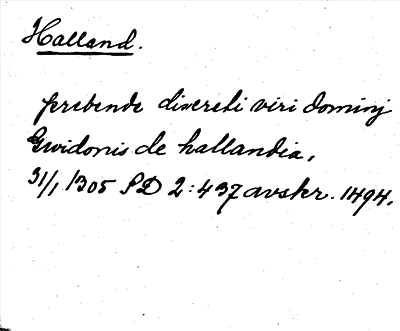 Halland.
prebende discreti viri dominj
Gwidonis de hallandia,
31/1 1305 SD 2:437 avskr. 1494.